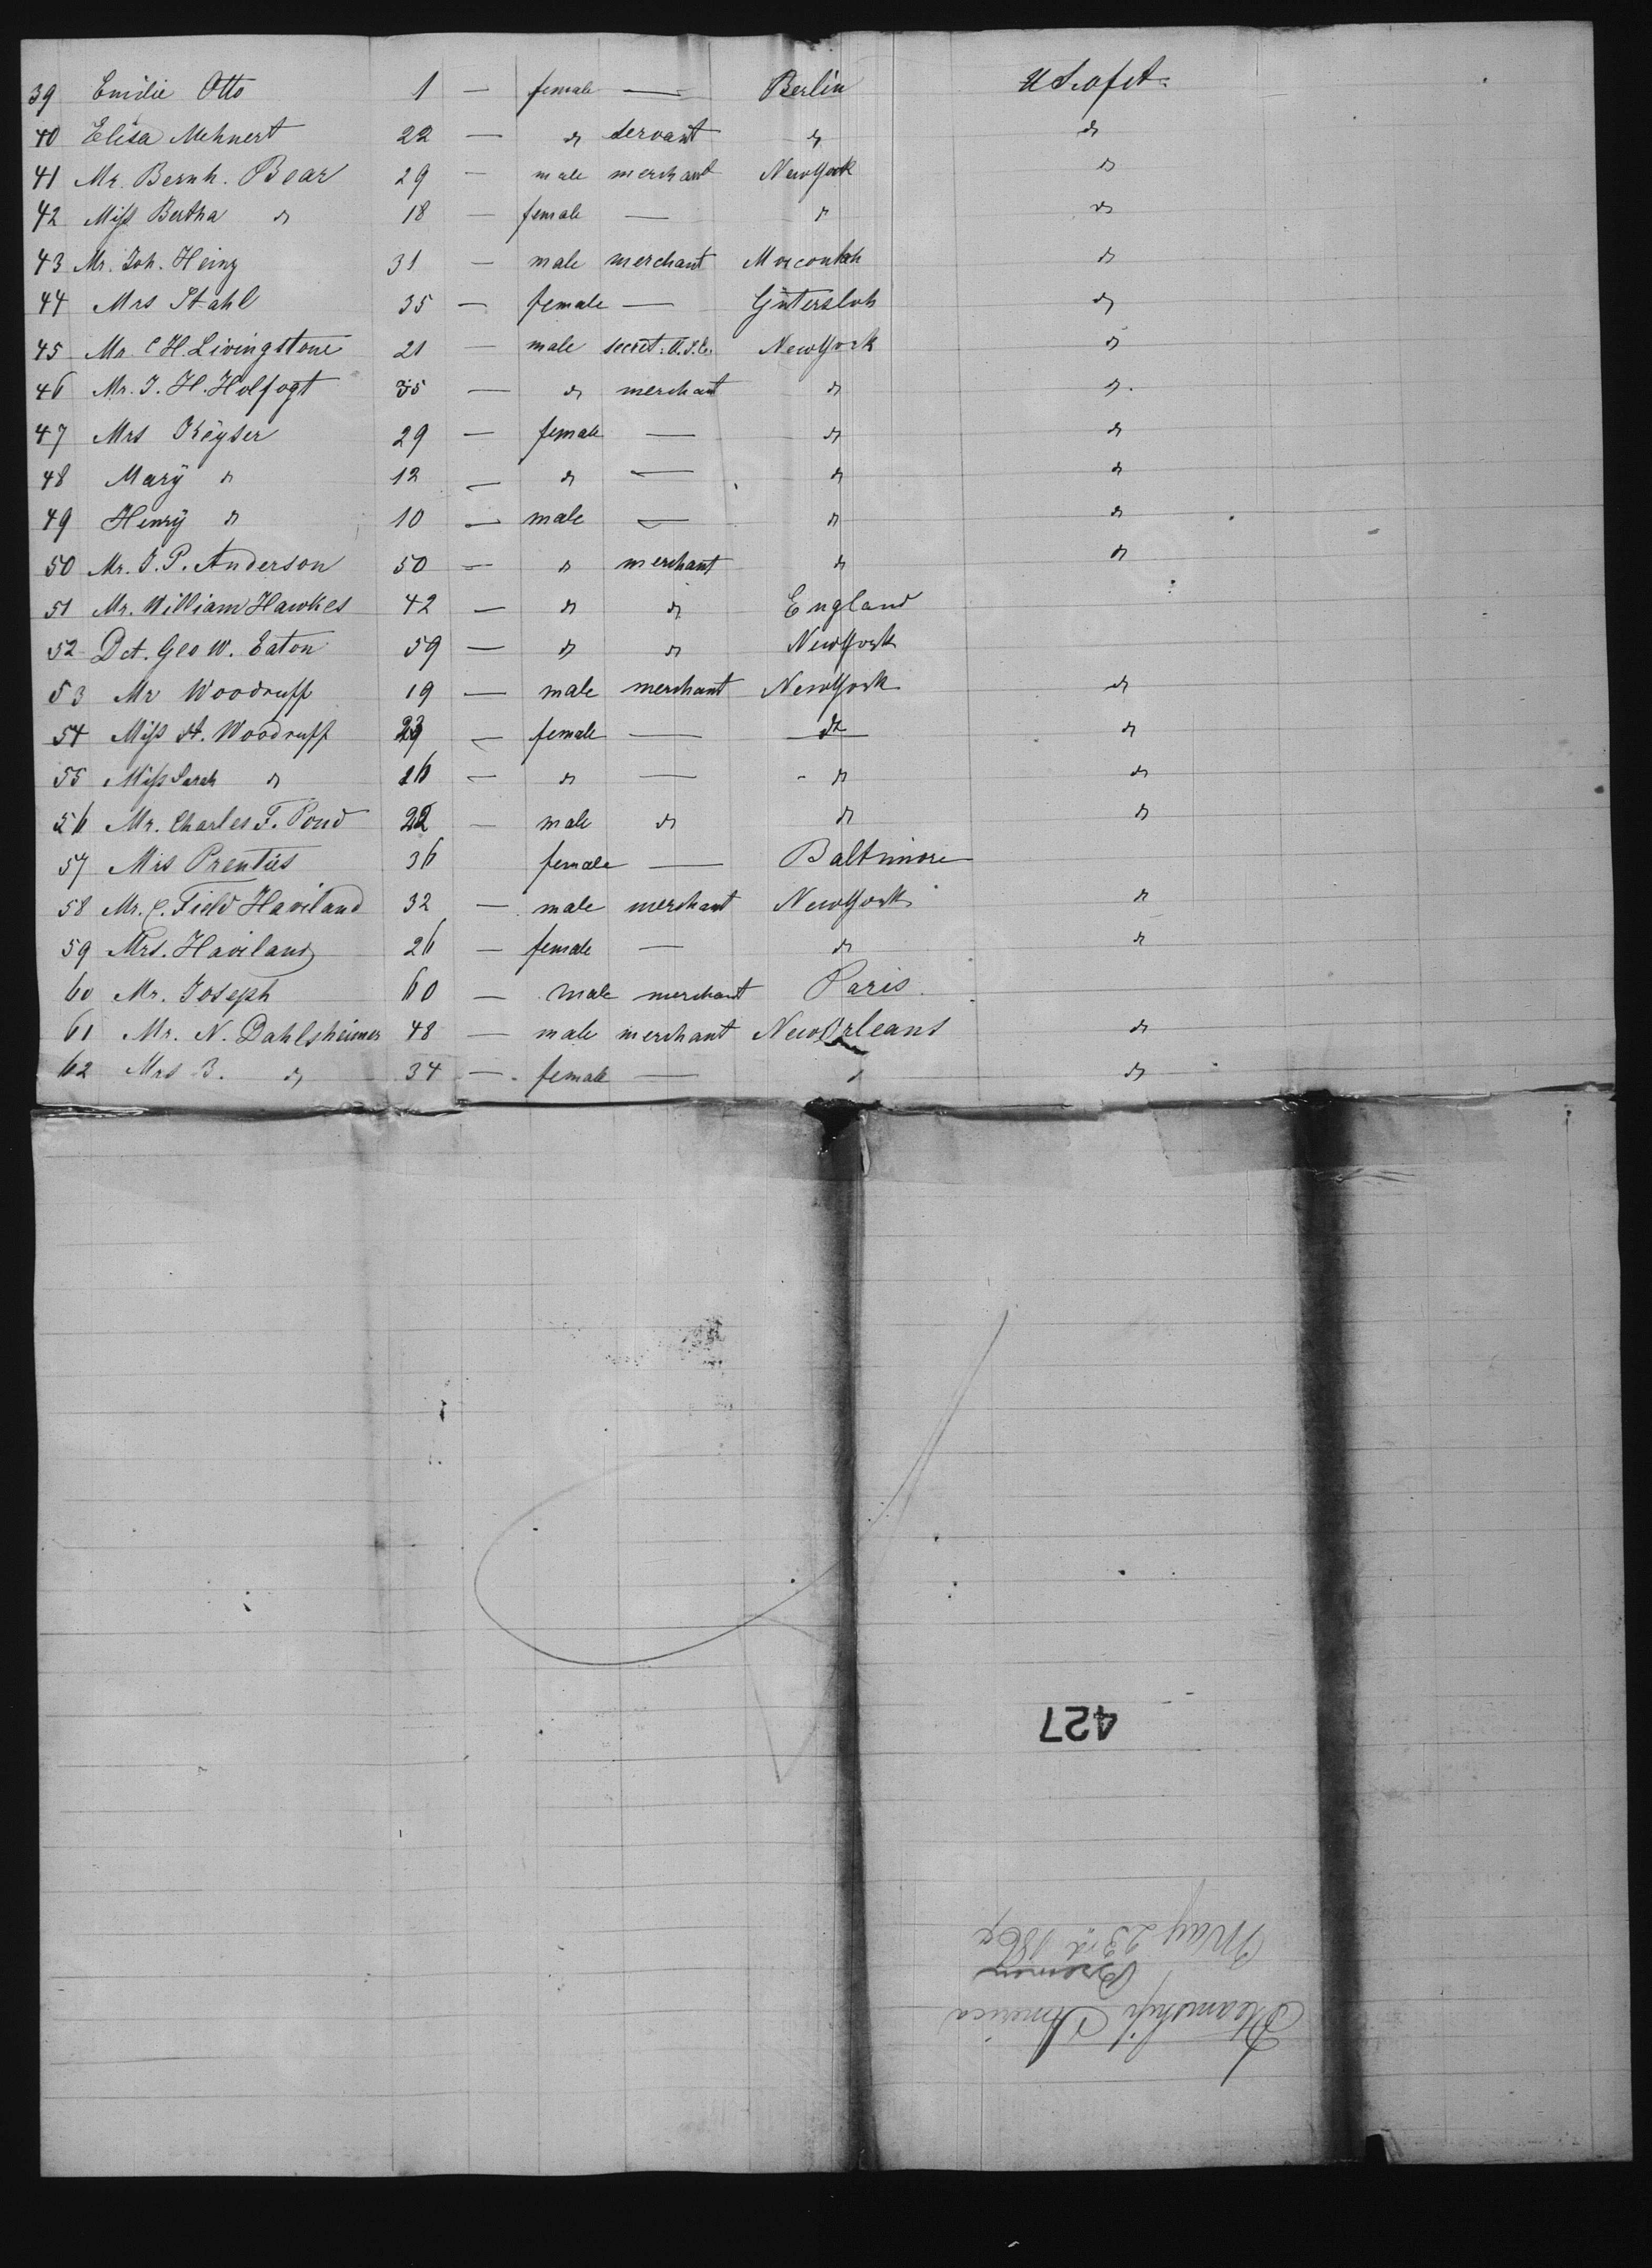 39 Emilie Otto 1 — female — Berlin U.S. of A.
40 Elisa Mehnert 22 — do servant do do
41 Mr. Bernh. Bear 29 — male merchant NewYork do
42 Miss Bertha do 18 — female — do do
43 Mr. Joh. Heinz 31 — male merchant do
44 Mrs Stahl 35 — female — Gütersloh do
45 Mr. C H. Livingstone 21 — male secret. NewYork do
46 Mr. J. H. Holfogt 35 — do merchant do do.
47 Mrs Keyser 29 — female — do do
48 Marÿ do 12 — do — do do
49 Henrÿ do 10 — male — do do
50 Mr. J. P. Anderson 50 — do merchant do do
51 Mr. William Hawkes 42 — do do England
52 Dct. Geo W. Eaton 59 — do do NewYork
53 Mr Woodruff 19 — male merchant NewYork do
54 Miss A. Woodruff 23 — female — do do
55 Miss Sarah do 16 — do — do do
56 Mr. Charles F. Pond 22 — male do do do
57 Mis Prentiss 36 female — Baltimore
58 Mr. C. Field Haviland 32 — male merchant NewYork do
59 Mrs. Haviland 26 — female — do do
60 Mr. Joseph 60 — male merchant Paris
61 Mr. N. Dahlsheimer 48 — male merchant NewOrleans do
62 Mrs B. do 34 — female — do do
427
Steamship America
Bremen
May 23rd